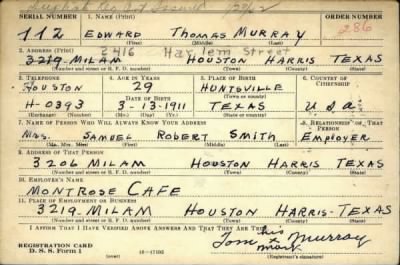 SERIAL NUMBER 1. NAME (Print) ORDER NUMBER
112 EDWARD THOMAS MURRAY 286
(First) (Middle) (Last)
2416 Harlem Street
2. ADDRESS (Print)
3219 MILAM HOUSTON HARRIS TEXAS
(Number and street or R. F. D. number) (Town) (County) (State)
3. TELEPHONE 4. AGE IN YEARS 5. PLACE OF BIRTH 6. COUNTRY OF CITIZENSHIP
HOUSTON 29 HUNTSVILLE
DATE OF BIRTH (Town or county)
H-0393 3-13-1911 TEXAS U S A
(Exchange) (Number) (Mo.) (Day) (Yr.) (State or country)
7. NAME OF PERSON WHO WILL ALWAYS KNOW YOUR ADDRESS 8. RELATIONSHIP OF THAT PERSON
Mrs. SAMUEL ROBERT SMITH EMPLOYER
(Mr., Mrs., Miss) (First) (Middle) (Last)
9. ADDRESS OF THAT PERSON
3206 MILAM HOUSTON HARRIS TEXAS
(Number and street or R. F. D. number) (Town) (County) (State)
10. EMPLOYER'S NAME
MONTROSE CAFE
11. PLACE OF EMPLOYMENT OR BUSINESS
3219 MILAM HOUSTON HARRIS-TEXAS
(Number and street or R. F. D. number) (Town) (County) (State)
I AFFIRM THAT I HAVE VERIFIED ABOVE ANSWERS AND THAT THEY ARE TRUE.
his
Tom x Murray
mark
REGISTRATION CARD
D. S. S. Form 1 (over)